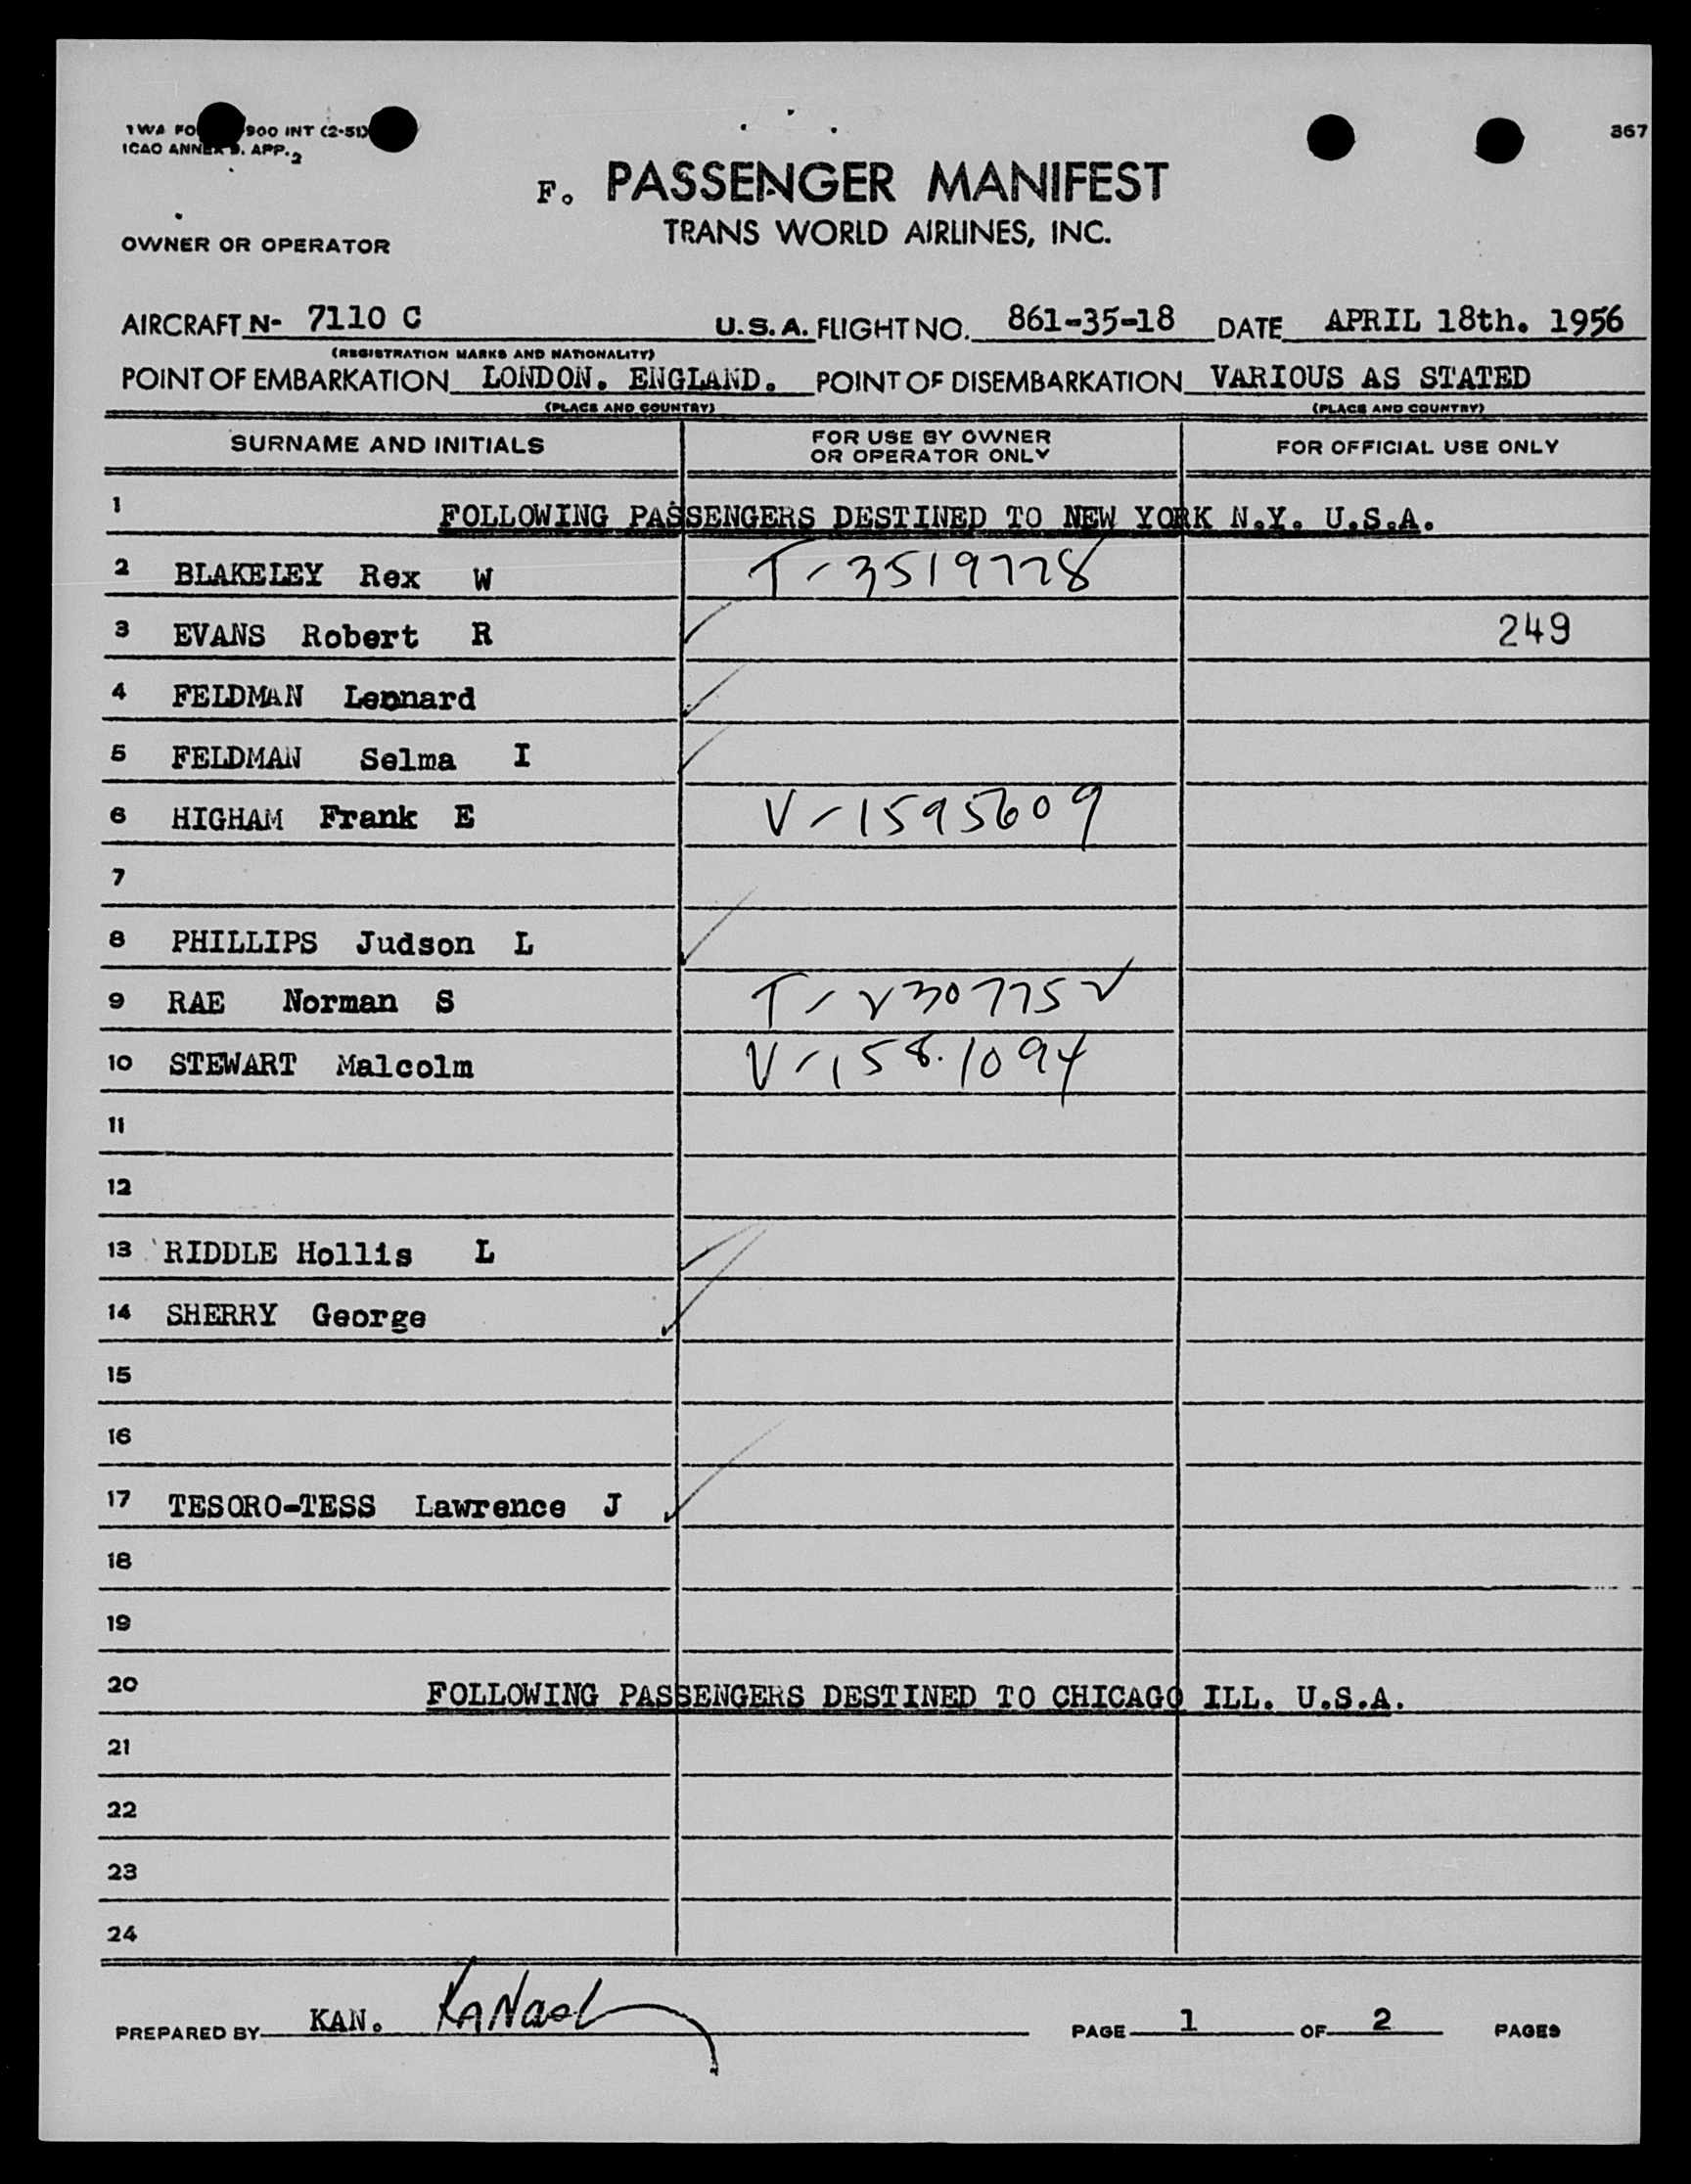 TWA FO 900 INT (2-51)
ICAO ANNEX 9. APP. 2
367
F. PASSENGER MANIFEST
TRANS WORLD AIRLINES, INC.
OWNER OR OPERATOR
AIRCRAFT N- 7110 C U.S.A. FLIGHT NO. 861-35-18 DATE APRIL 18th. 1956
(REGISTRATION MARKS AND NATIONALITY)
POINT OF EMBARKATION LONDON. ENGLAND. POINT OF DISEMBARKATION VARIOUS AS STATED
(PLACE AND COUNTRY) (PLACE AND COUNTRY)
SURNAME AND INITIALS FOR USE BY OWNER OR OPERATOR ONLY FOR OFFICIAL USE ONLY
1 FOLLOWING PASSENGERS DESTINED TO NEW YORK N.Y. U.S.A.
2 BLAKELEY Rex W T-3519778
3 EVANS Robert R 249
4 FELDMAN Leonard
5 FELDMAN Selma I
6 HIGHAM Frank E V-1595609
7
8 PHILLIPS Judson L
9 RAE Norman S
10 STEWART Malcolm V-1581094
11
12
13 RIDDLE Hollis L
14 SHERRY George
15
16
17 TESORO-TESS Lawrence J
18
19
20 FOLLOWING PASSENGERS DESTINED TO CHICAGO ILL. U.S.A.
21
22
23
24
PREPARED BY KAN. KANash PAGE 1 OF 2 PAGES